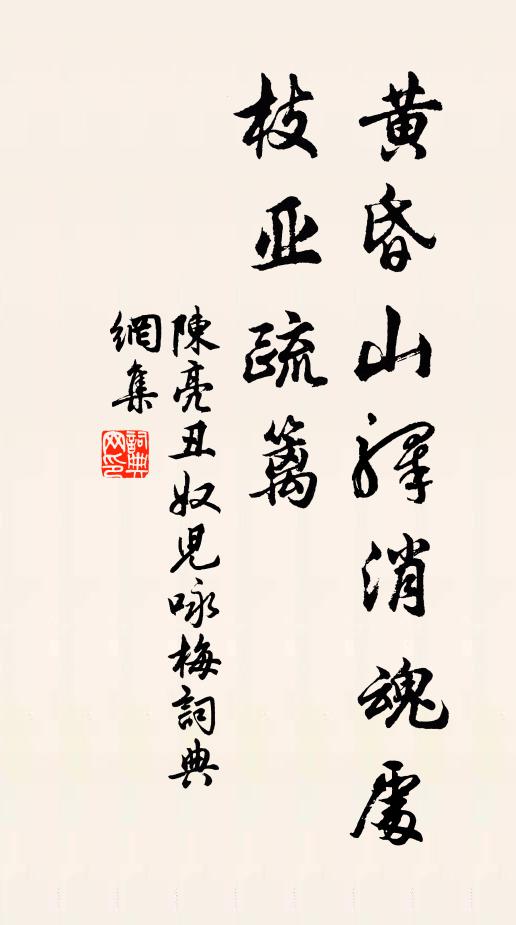 黄昏山驛消魂處
枝亚疏籬
陳亮丑奴児咏梅詞典
網集
詞典
网印